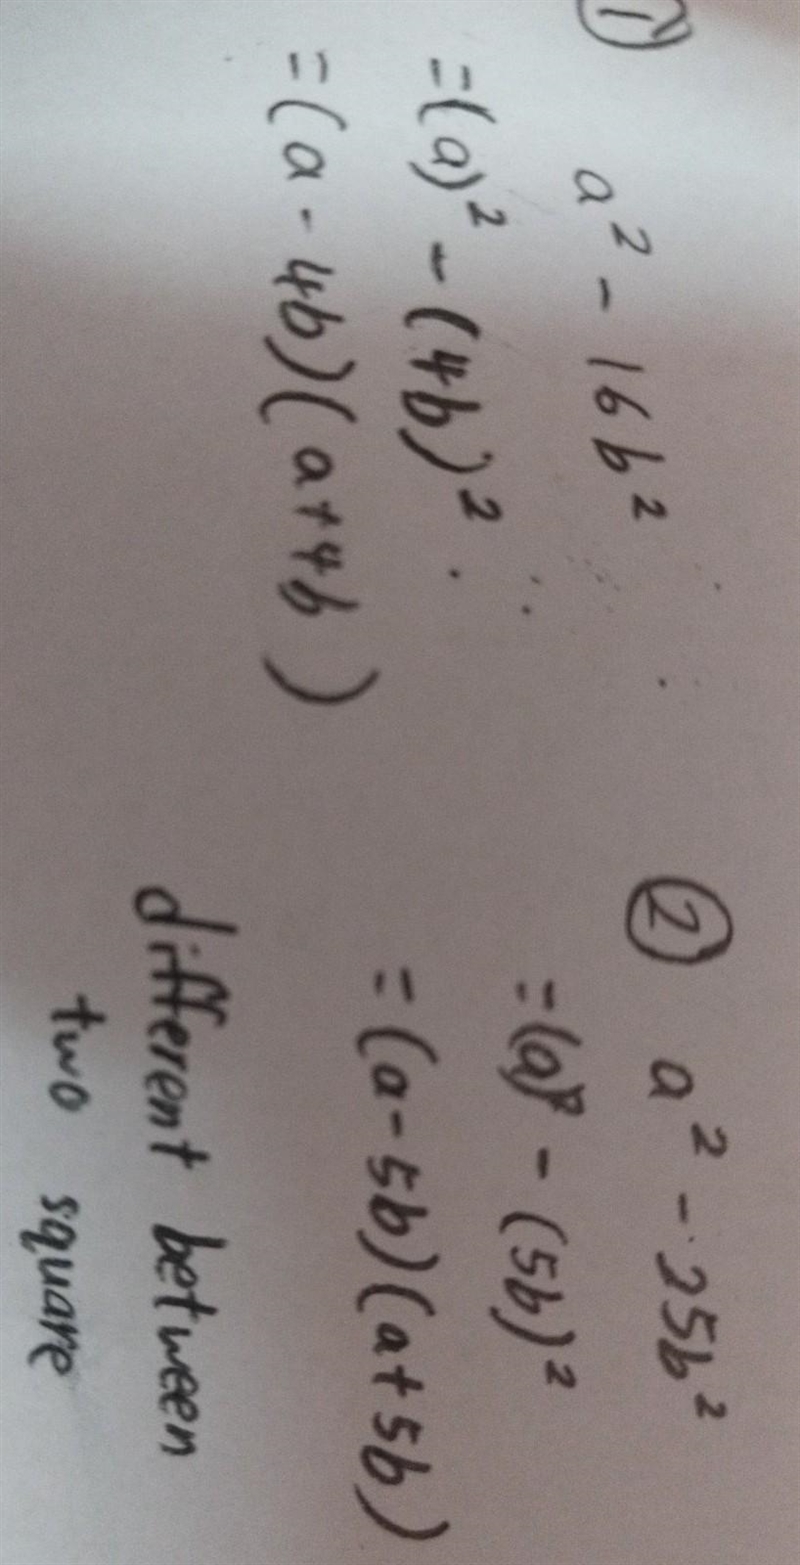 ①
a² - 16b²
=(a)² - (4b)²
=(a - 4b)(a+4b)
②
a² - 25b²
=(a)² - (5b)²
=(a-5b)(a+5b)
different between
two square